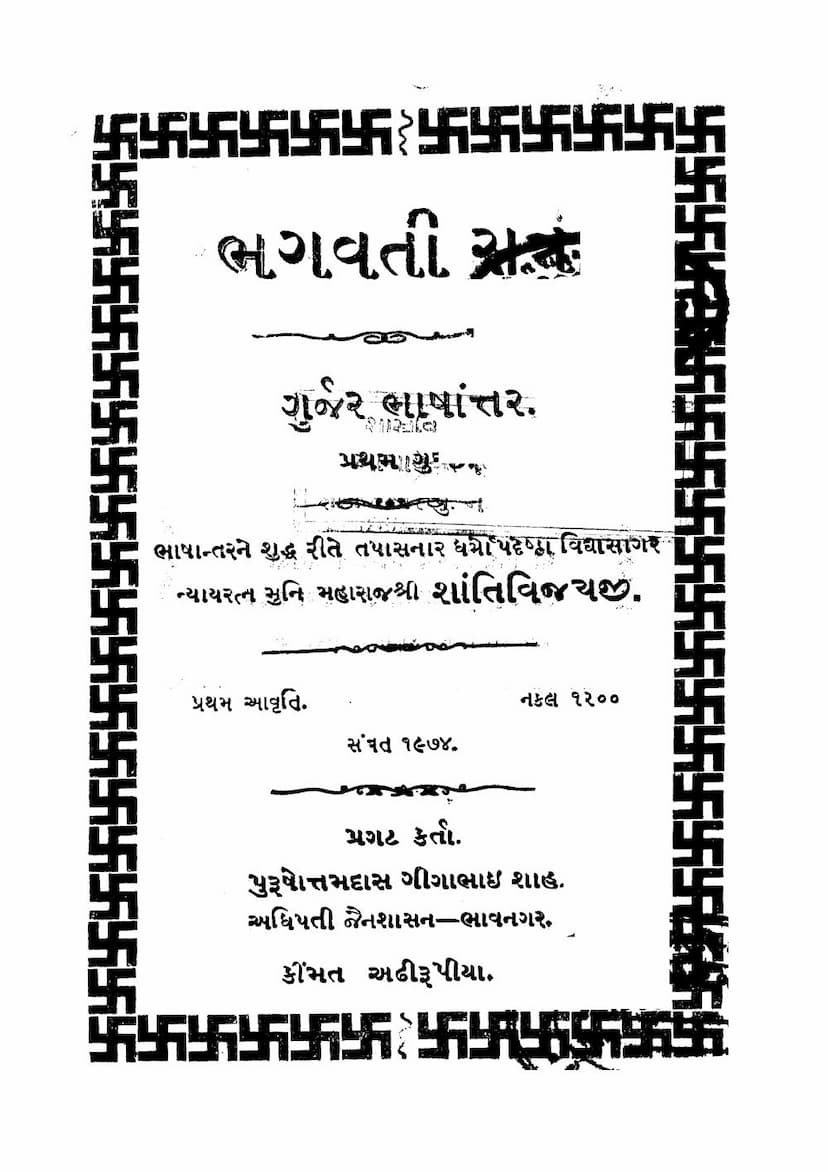 ભગવતી
ગુર્જર ભાષાંત્તર.
પ્રથમ
ભાષાન્તરને શુદ્ધ રીતે તપાસનાર ધર્મોપદેષ્ટા વિદ્યાસાગર
ન્યાયરત્ન મુનિ મહારાજશ્રી શાંતિવિજયજી.
પ્રથમ આવૃતિ. નકલ ૧૨૦૦
સંવત ૧૯૭૪.
પ્રગટ કર્તા.
પુરૂષોત્તમદાસ ગીગાભાઇ શાહ.
અધિપતી જૈનશાસન—ભાવનગર.
કીંમત અઢીરૂપીયા.